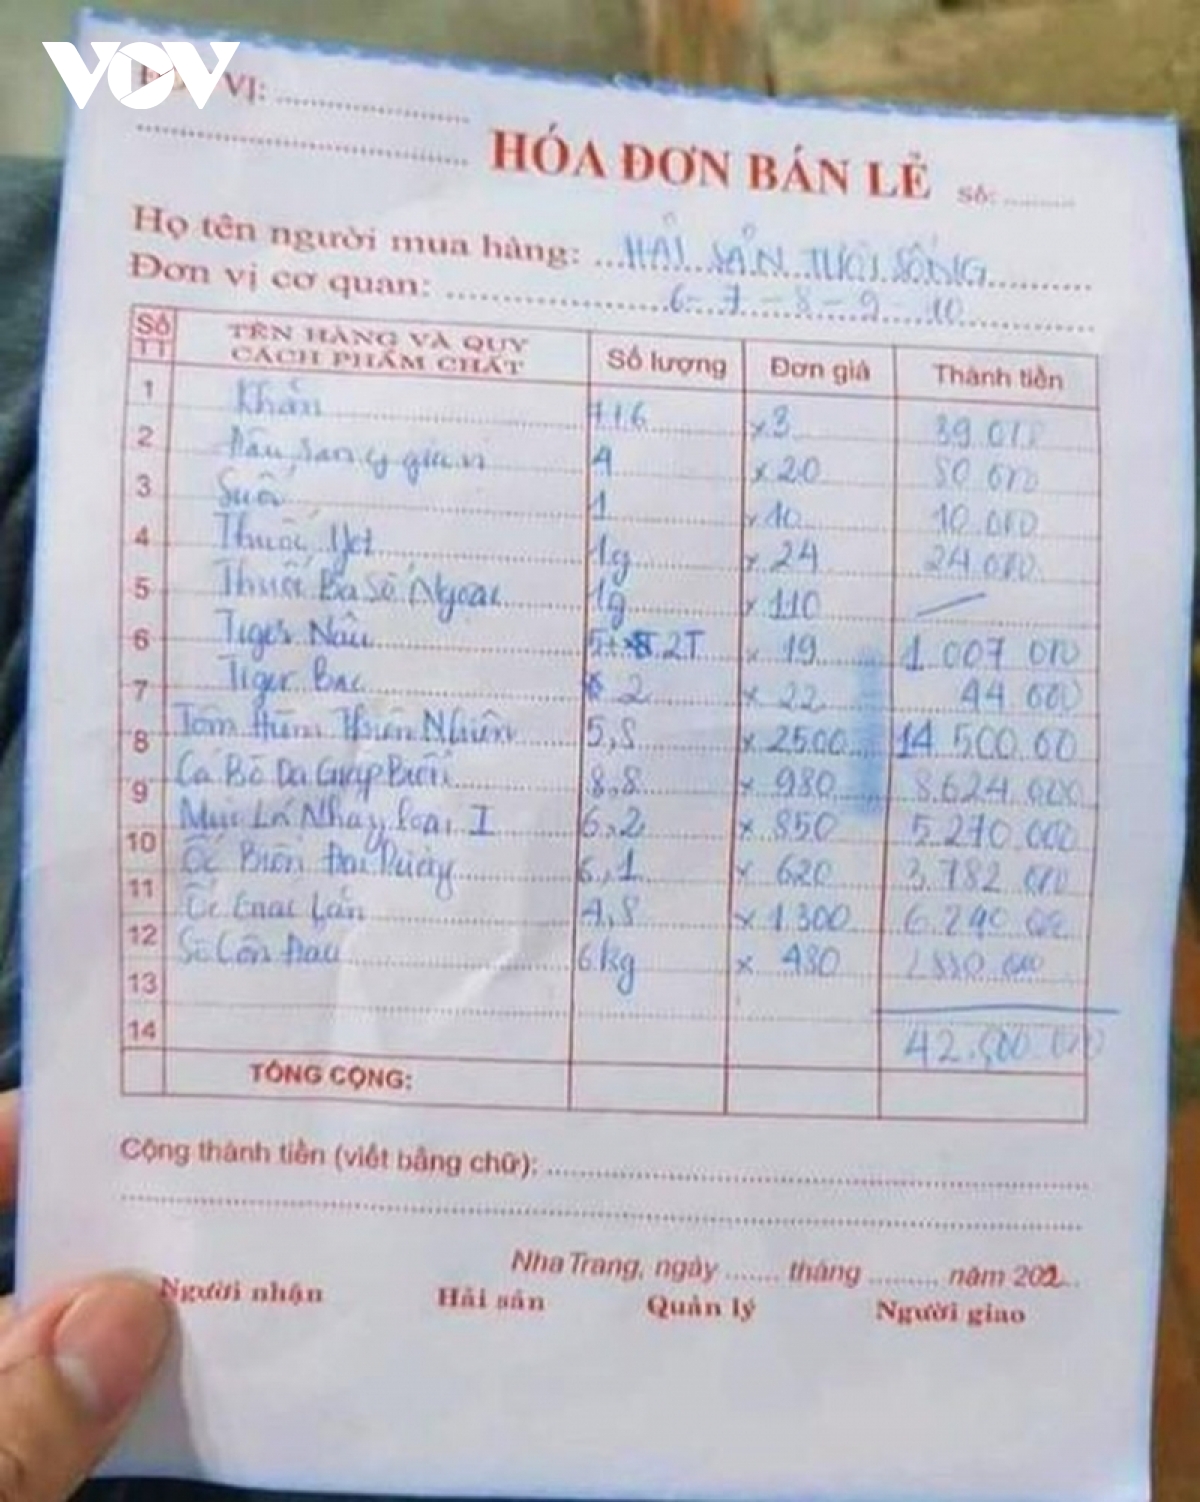 VOV
VỊ:
HÓA ĐƠN BÁN LẺ Số:
Họ tên người mua hàng: HẢI SẢN TƯƠI SỐNG
Đơn vị cơ quan: 6-7-8-9-10
Số TT TÊN HÀNG VÀ QUY CÁCH PHẨM CHẤT Số lượng Đơn giá Thành tiền
1 Khăn x3 39.000
2 4 x20 80 000
3 Suối 1 x10 10.000
4 Thuốc Jet 1g x 24 24.000
5 Thuốc Ba Số Ngoại 1g x 110
6 Tiger Nâu 2T x 19 1.007 000
7 Tiger Bạc 2 x 22 44 000
8 Tôm Hùm Thiên Nhiên 5,8 x 2500 14 500.00
9 Cá Bò Da Giáp Biển 8.8 x 980 8.624.000
10 Mực Lá Nháy loại I 6.2 x 850 5.270.000
11 Ốc Biển Đại Dương 6,1 x 620 3.782 000
12 Ốc Giác Lớn 4,8 x 1.300 6.240 000
13 Sò Lông Đau 6kg x 480 2880 000
14 42.500 000
TỔNG CỘNG:
Cộng thành tiền (viết bằng chữ):
Nha Trang, ngày ....... tháng ......... năm 202...
Người nhận Hải sản Quản lý Người giao